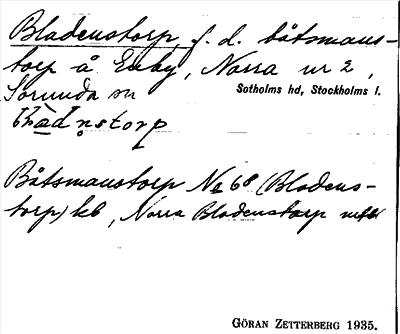 Bladenstorp, f. d. båtsmans-
torp å Enby, Norra nr 2,
Sorunda sn
Sotholms hd, Stockholms l.
Båtsmanstorp No 68 (Bladens-
torp) kb, Norra Bladenstorp
GÖRAN ZETTERBERG 1935.